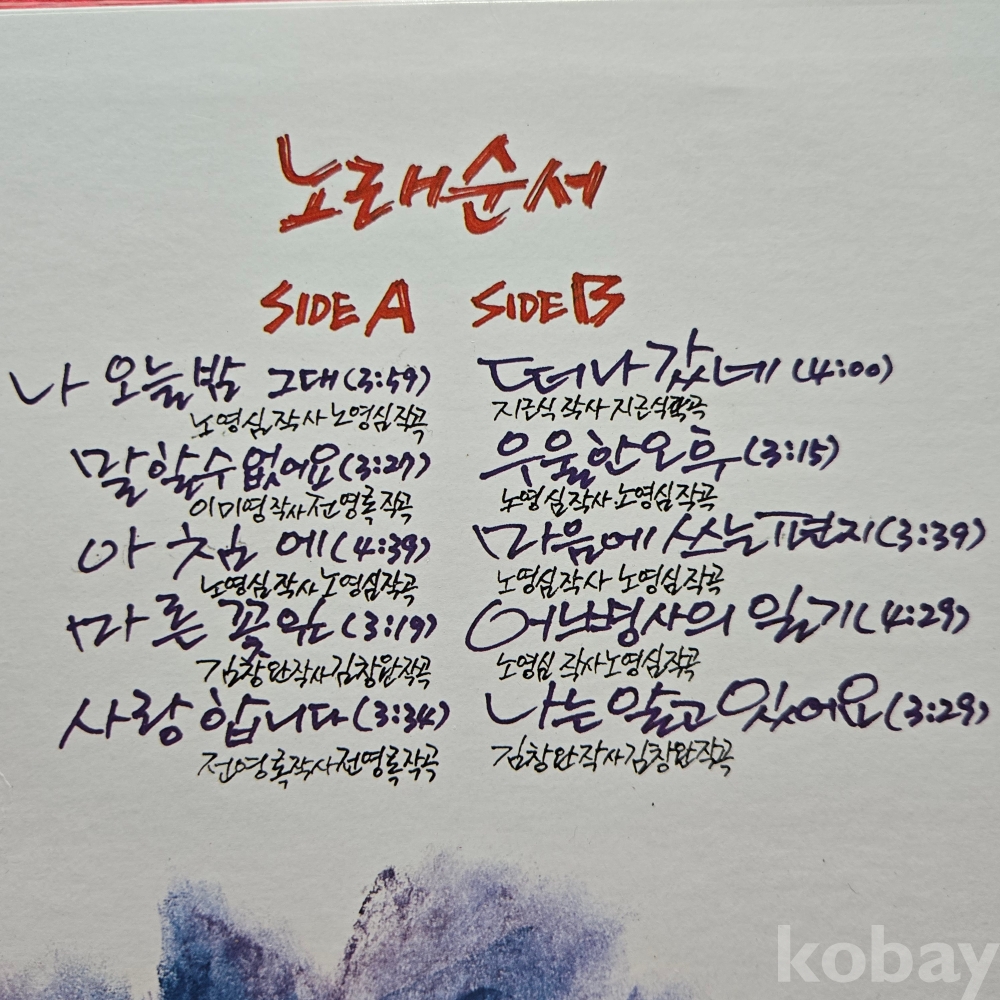 노래순서
SIDE A
나 오늘밤 그대(3:59)
노영심작사 노영심작곡
말할수없어요(3:27)
이미영작사전영록작곡
아침에(4:39)
노영심작사노영심작곡
마른꽃잎(3:19)
김창완작사김창완작곡
사랑합니다(3:34)
전영록작사전영록작곡
SIDE B
떠나갔네(4:00)
지근식작사지근식작곡
우울한오후(3:15)
노영심작사노영심작곡
마음에쓰는편지(3:39)
노영심작사 노영심작곡
어느병사의 일기(4:29)
노영심 작사노영심작곡
나는알고있어요(3:29)
김창완작사김창완작곡
kobay